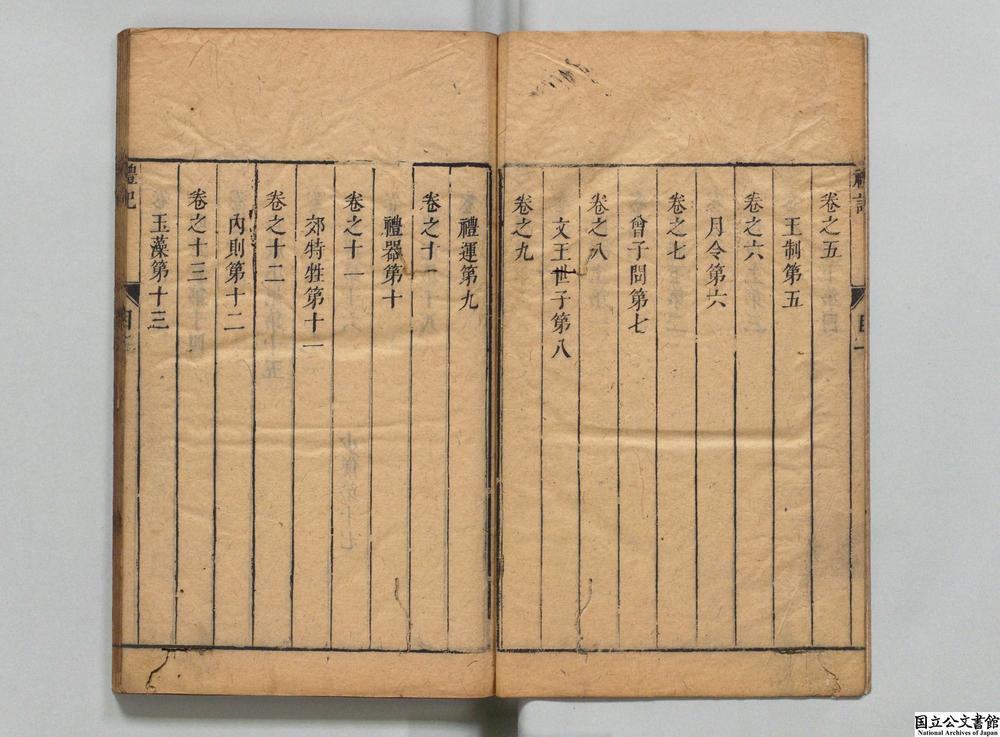 禮記
卷之五
王制第五
卷之六
月令第六
卷之七
曾子問第七
卷之八
文王世子第八
卷之九
禮運第九
卷之十
禮器第十
卷之十一
郊特牲第十一
卷之十二
內則第十二
卷之十三
玉藻第十三
禮記
国立公文書館
National Archives of Japan